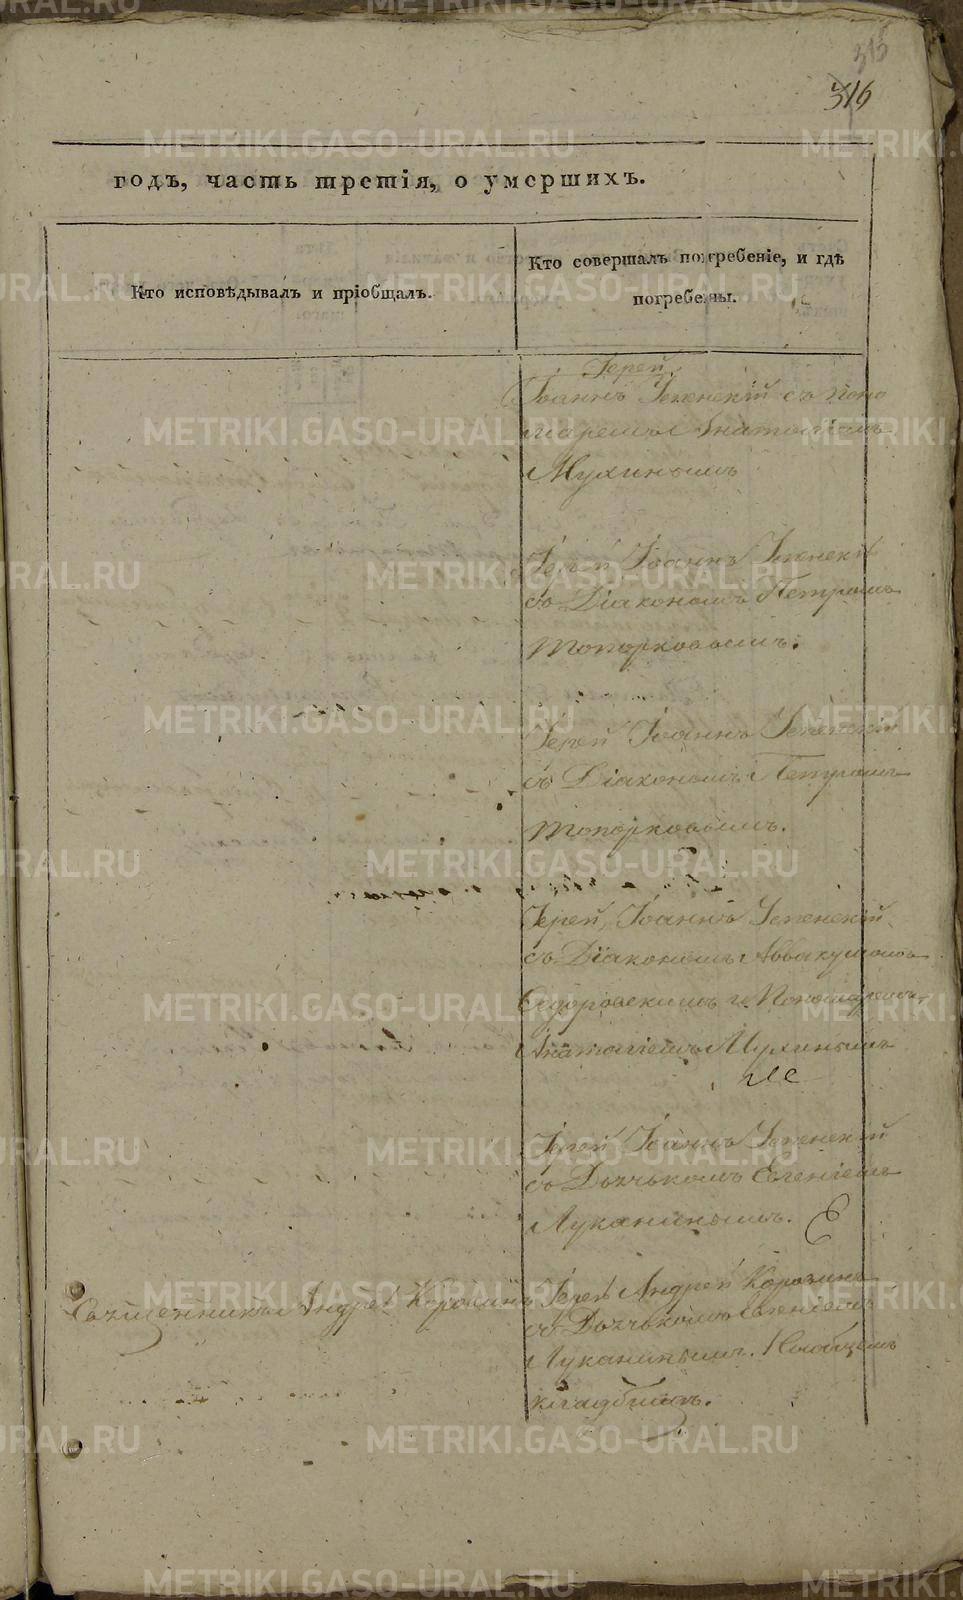 315
316
годъ, часть третія, о умершихъ.
Кто исповѣдывалъ и пріобщалъ.
Кто совершалъ погребеніе, и гдѣ
погребены.
Іерей
Іоаннъ Успенскій съ Поно
маремъ Анатоліемъ
Мухинымъ
Іерей Іоаннъ Успенскій
съ Діакономъ Петромъ
Топорковымъ.
Іерей Іоаннъ Успенскій
съ Діакономъ Петромъ
Топорковымъ.
Іерей Іоаннъ Успенскій
съ Діакономъ Аввакумомъ
и Пономаремъ
Анатоліемъ Мухинымъ
Іерей Іоаннъ Успенскій
съ Дьячькомъ Евгеніемъ
Луканинымъ.
Священникъ Андрей Коровинъ
Іерей Андрей Коровинъ
съ Дьячькомъ Евгеніемъ
Луканинымъ. На общемъ
кладбищѣ.
METRIKI.GASO-URAL.RU